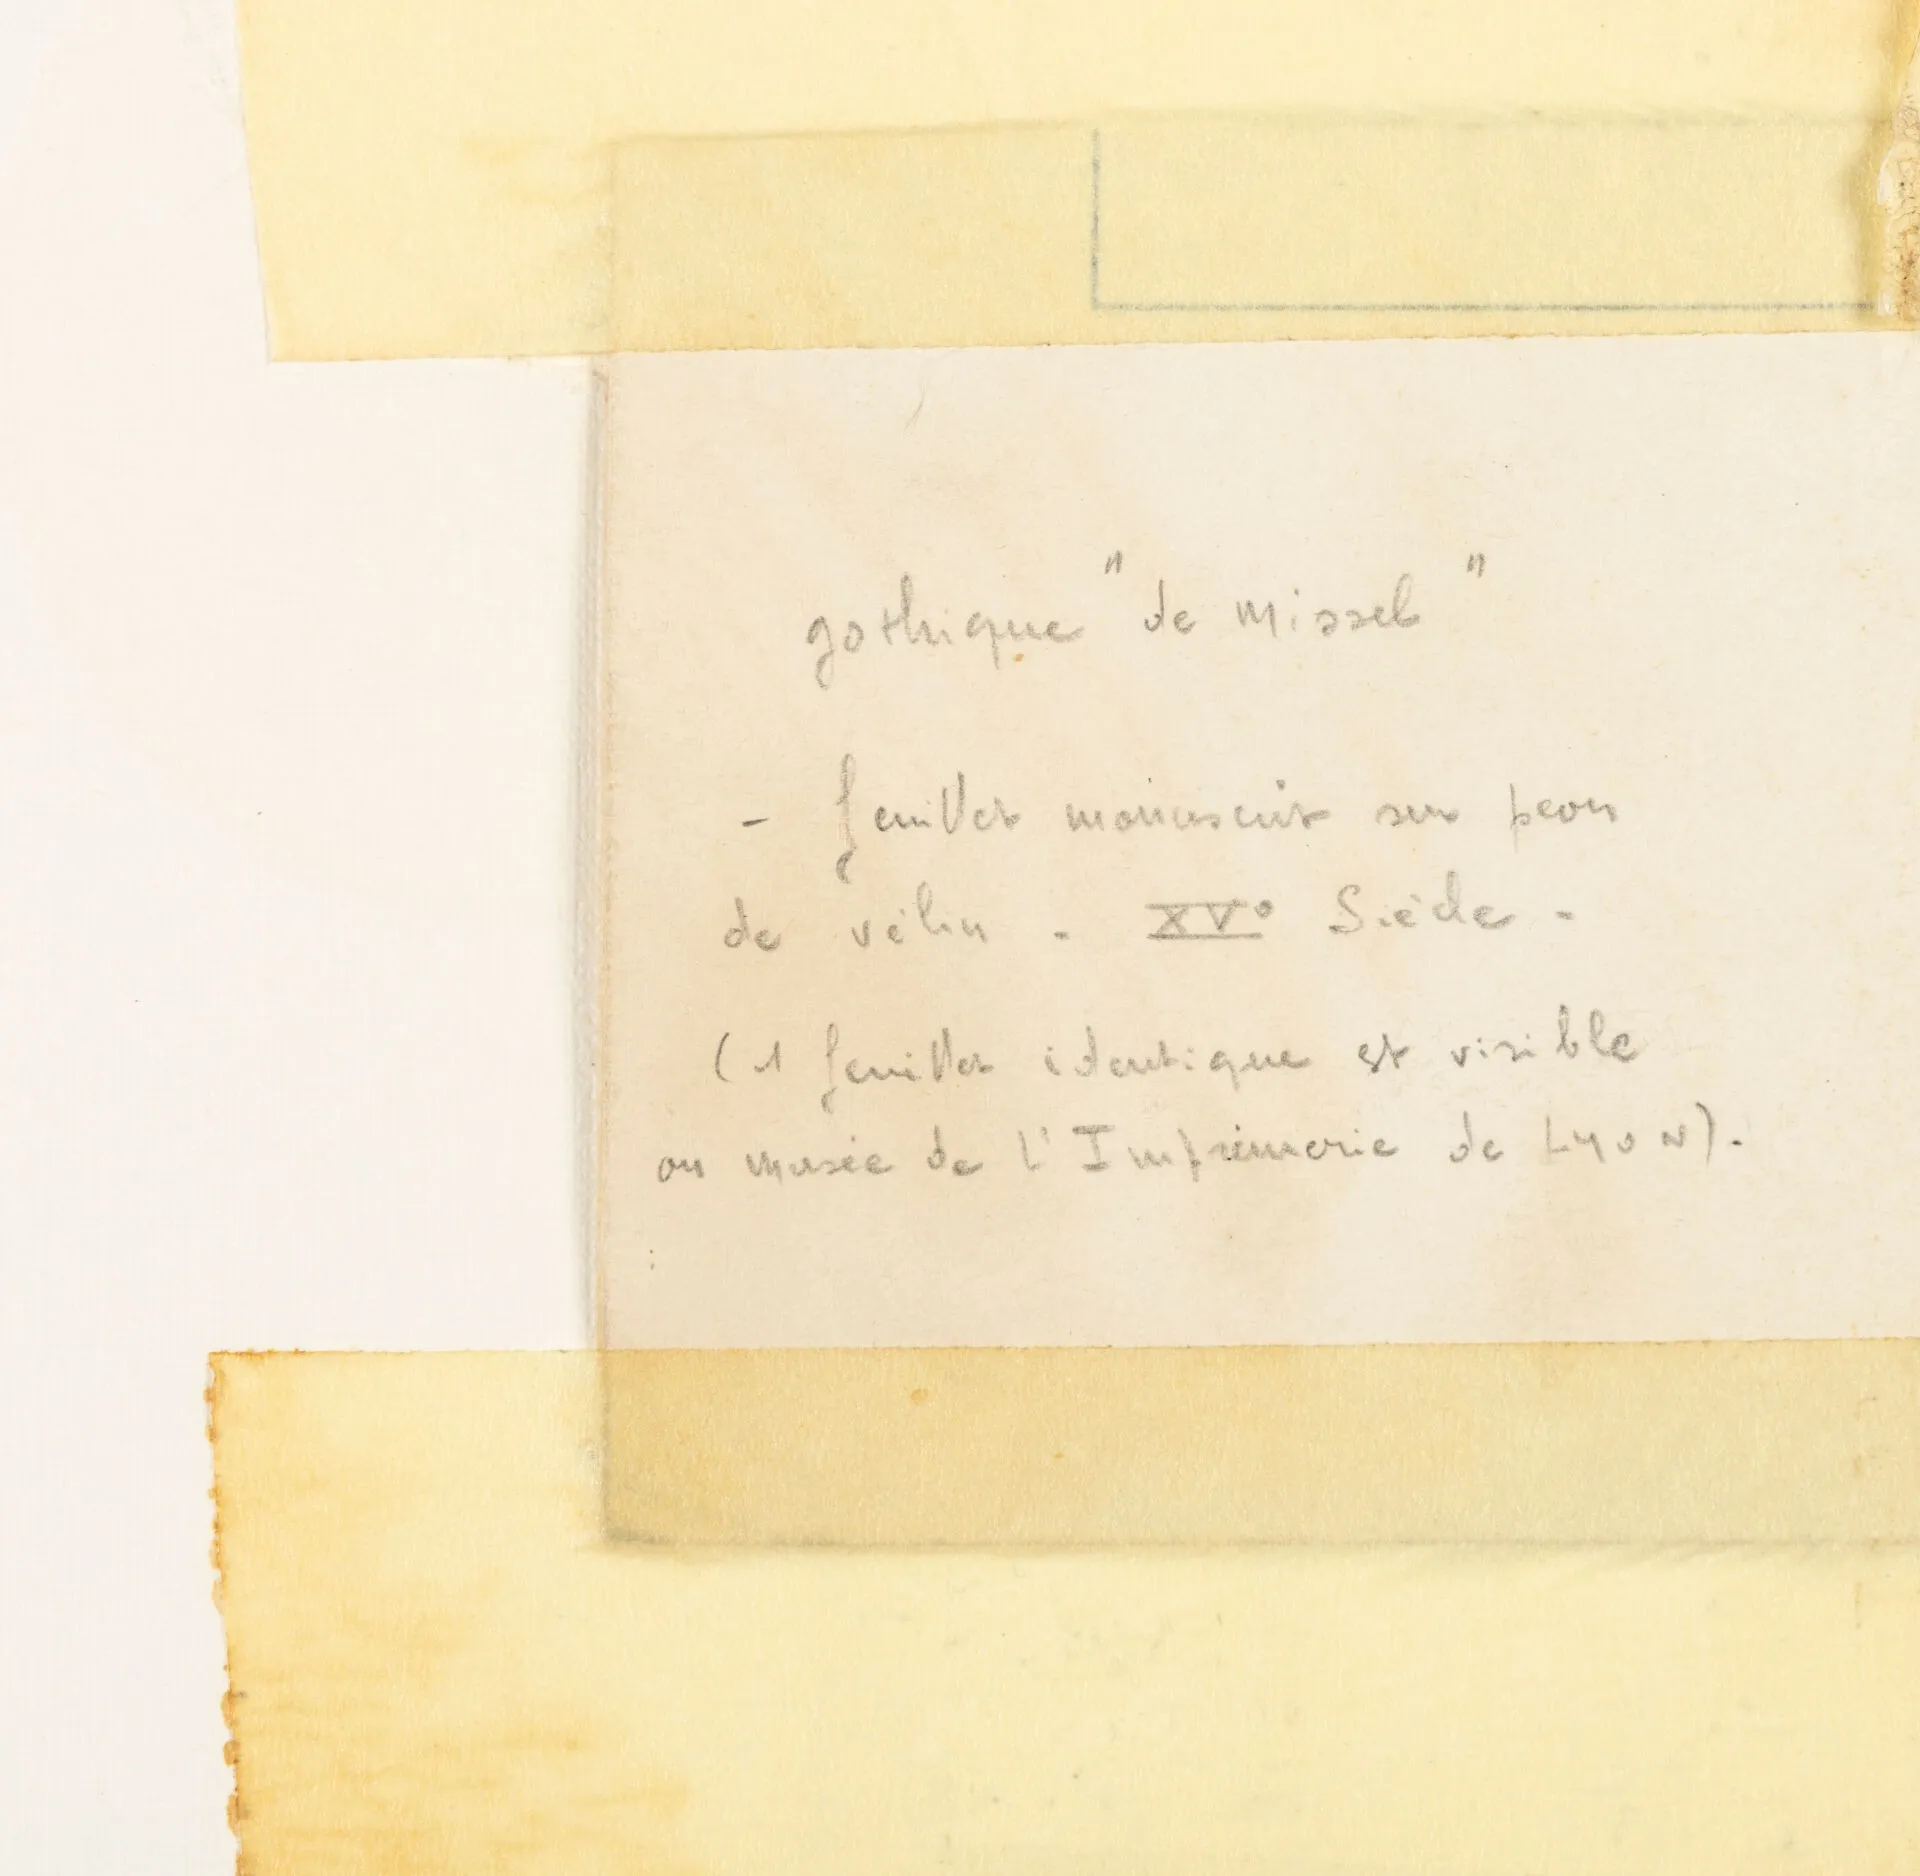 gothique "de Missel"
- feuillet manuscrit sur peau
de vélin - XV° Siècle -
( 1 feuillet identique est visible
au musée de l'Imprimerie de LYON).